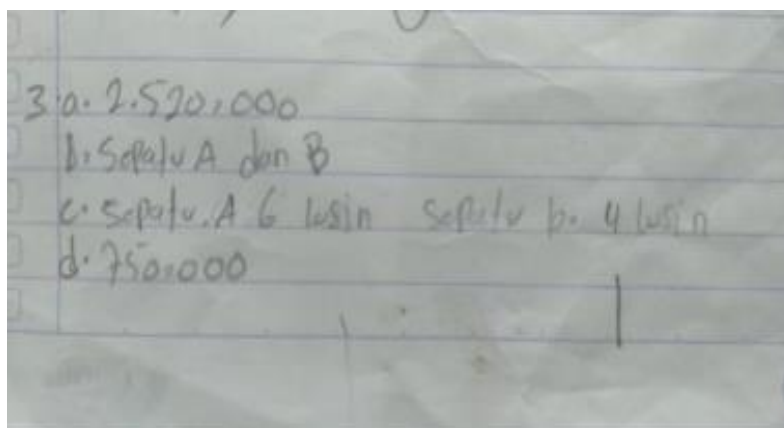 3 a. 2.520.000
b. Sepatu A dan B
c. Sepatu. A 6 lusin sepatu b. 4 lusin
d. 750.000